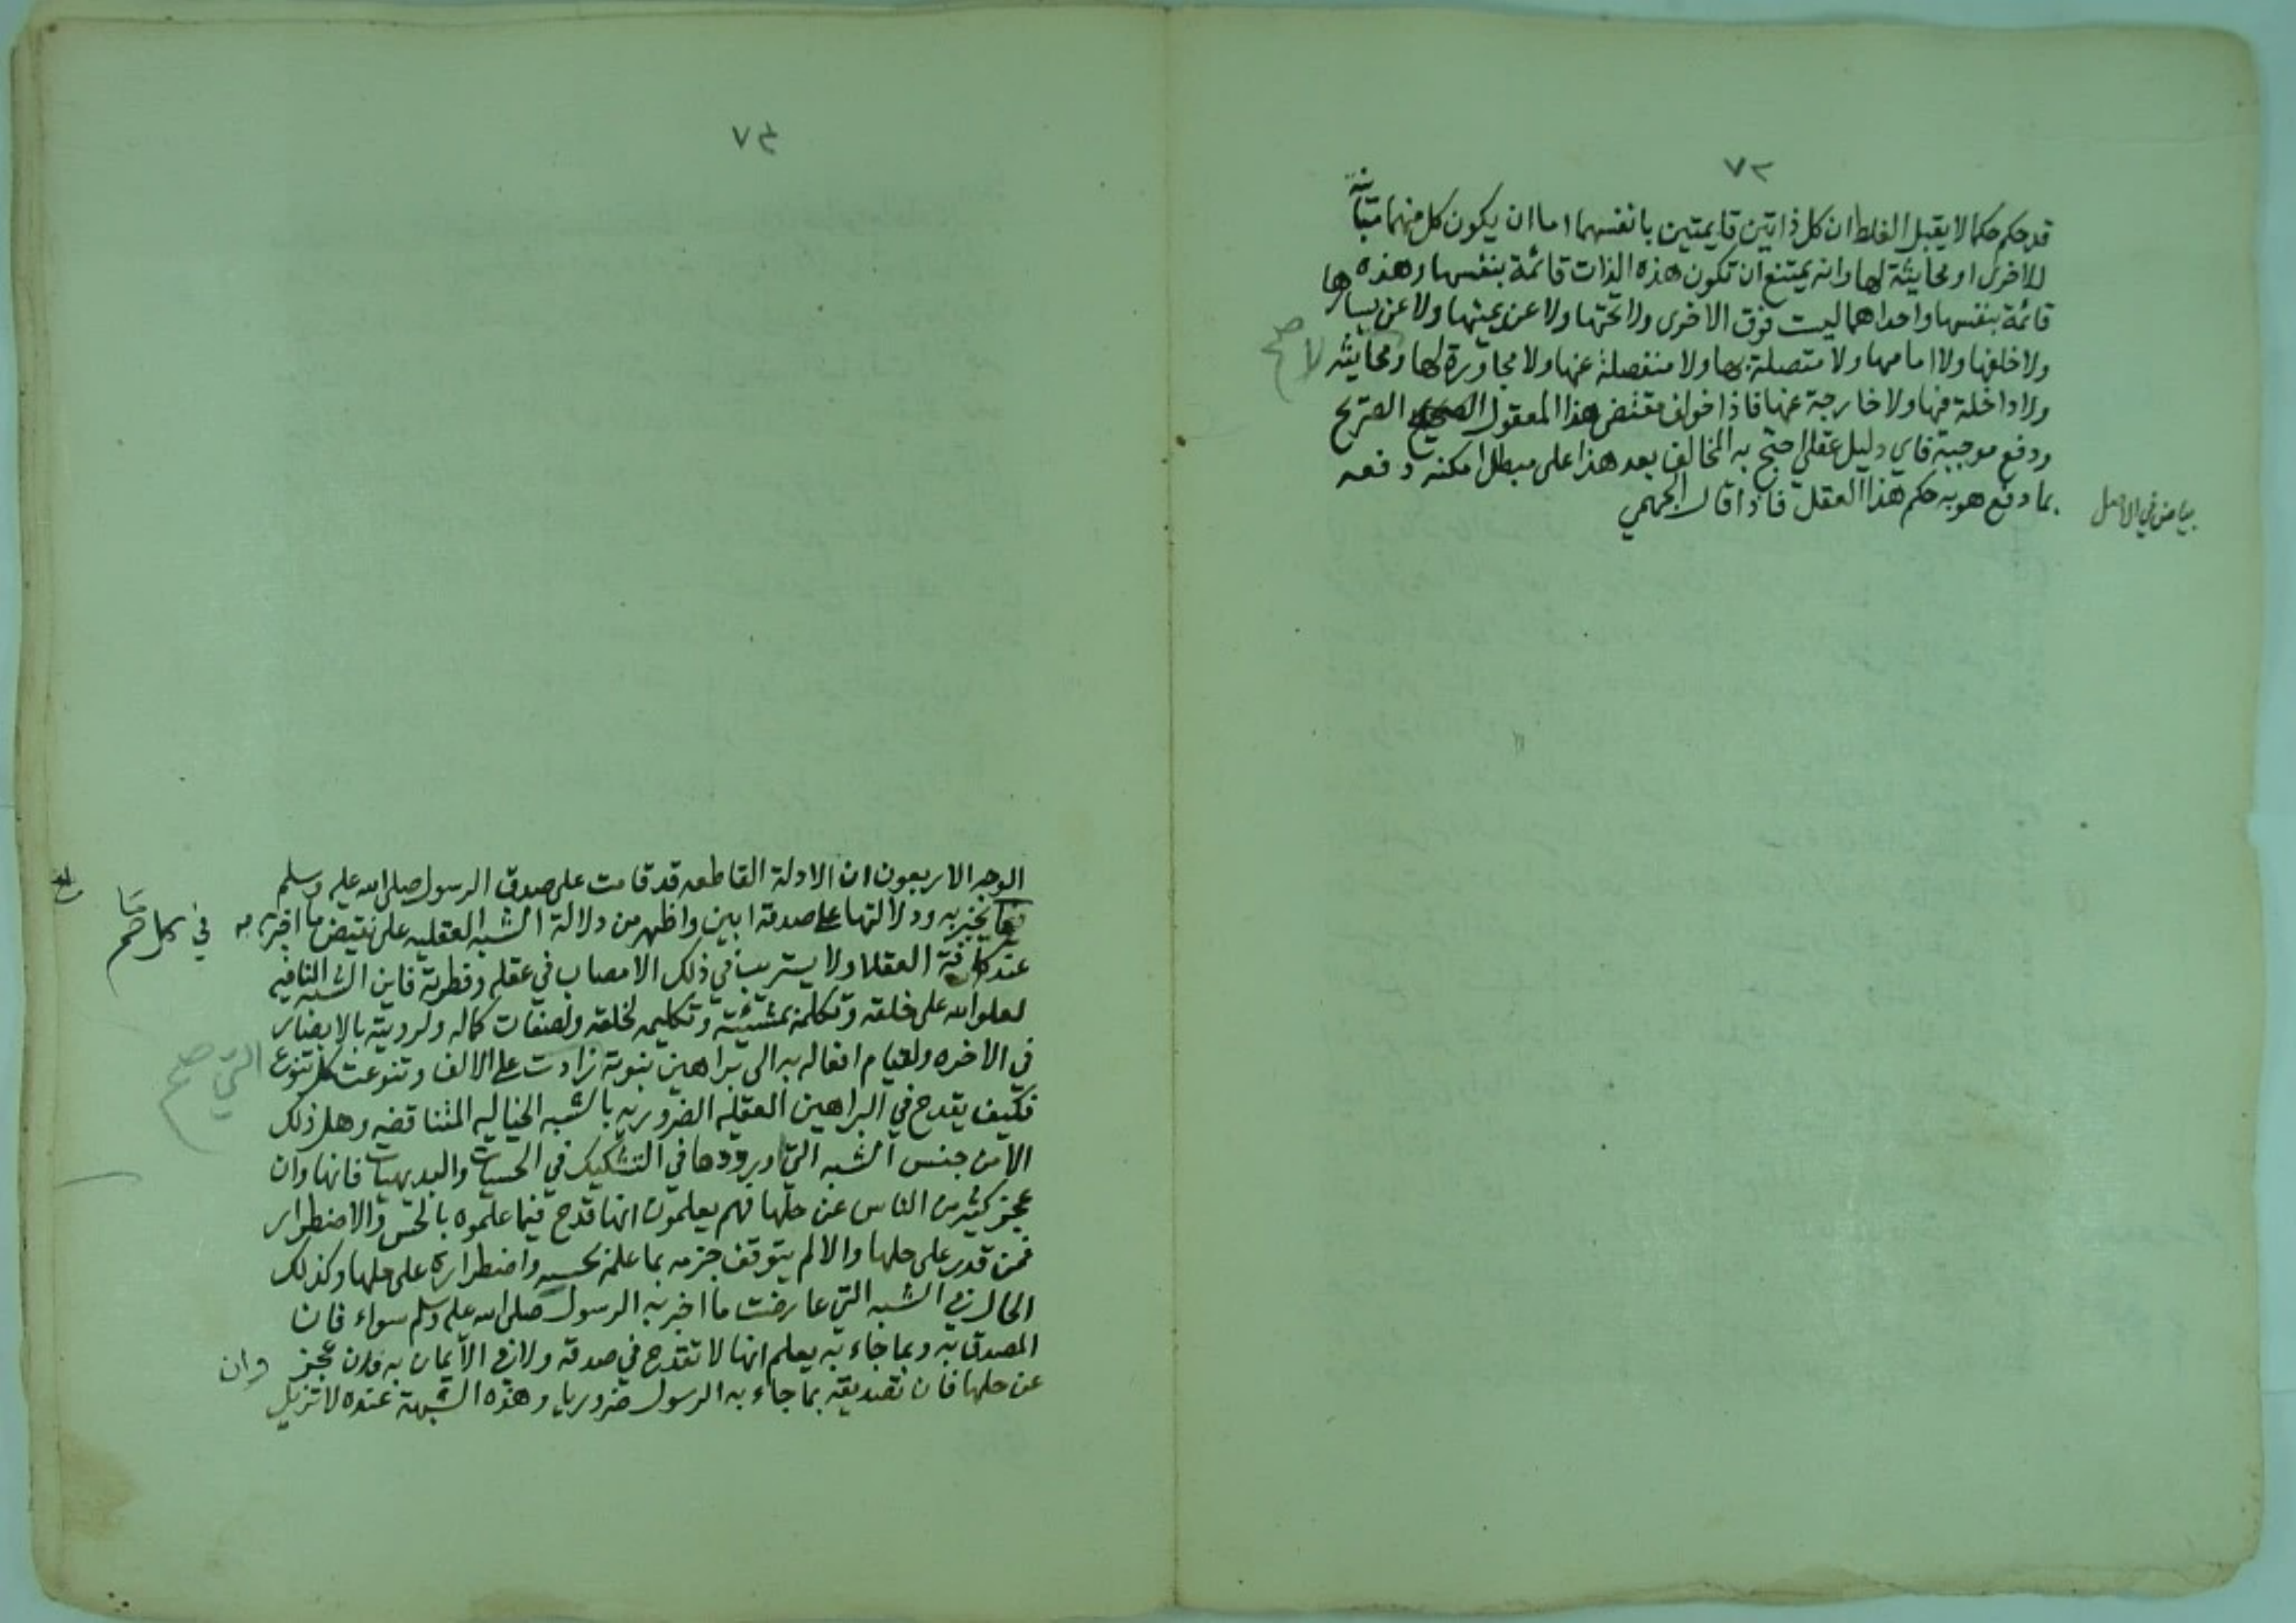 ٧٣
قد حكم حكما لا يقبل الغلط ان كل ذاتين قايمتين بانفسهما اما ان يكون كل منهما مباينة
للاخرى او محايثة لها وانه يمتنع ان تكون هذه الذات قائمة بنفسها وهذه
قائمة بنفسها واحداهما ليست فوق الاخرى ولا تحتها ولا عن يمينها ولا عن يسارها
ولا خلفها ولا امامها ولا متصلة بها ولا منفصلة عنها ولا مجاورة لها ومحايثه
لا صح
ولا داخلة فيها ولا خارجة عنها فاذا خولف مقتضى هذا المعقول الصريح
ودفع موجبه فاي دليل عقلي احتج به المخالف بعد هذا على مبطل امكنه دفعه
بما دفع هو به حكم هذا العقل فاذا قال الجهمي
بياض في الاصل
٧٤
الوجه الاربعون ان الادلة القاطعه قد قامت على صدق الرسول صلى الله عليه وسلم
يخبر به ودلالتها على صدقه ابين واظهر من دلالة الشبه العقليه على نقيض ما اخبر به
في كل ما صح
عند كافة العقلا ولا يستريب في ذلك الا مصاب في عقله وفطرته فاين الشبه النافيه
لعلو الله على خلقه وتكلمه بمشيئته وتكليمه لخلقه ولصفات كماله ولرويته بالابصار
في الاخره ولقيام افعاله به الى براهين نبوته زادت على الالف وتنوعت كل تنوع
التي صح
فكيف يقدح في البراهين العقليه الضروريه بالشبه الخياليه المتناقضه وهل ذلك
الا من جنس الشبه التي اوردوها في التشكيك في الحسيات والبديهيات فانها وان
عجز كثير من الناس عن حلها فهم يعلمون انها قدح فيما علموه بالحس والاضطرار
فمن قدر على حلها والا لم يتوقف جزمه بما علمه بحسه واضطراره على حلها وكذلك
الحال في الشبه التي عارضت ما اخبر به الرسول صلى الله عليه وسلم سواء فان
المصدق به وبما جاء به يعلم انها لا تقدح في صدقه ولا في الايمان به وان عجز
وان
عن حلها فان تصديقه بما جاء به الرسول ضروريا وهذه الشبهة عنده لا تزيل